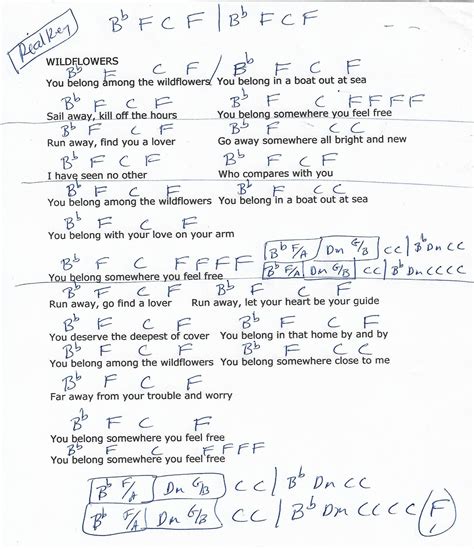 Real Key
B♭ F C F | B♭ F C F
WILDFLOWERS
B♭ F C F / B♭ F C F
You belong among the wildflowers You belong in a boat out at sea
B♭ F C F B♭ F C F F F F
Sail away, kill off the hours You belong somewhere you feel free
B♭ F C F B♭ F C C
Run away, find you a lover Go away somewhere all bright and new
B♭ F C F B♭ F C F
I have seen no other Who compares with you
B♭ F C F B♭ F C C
You belong among the wildflowers You belong in a boat out at sea
B♭ F C F
You belong with your love on your arm
B♭ F/A / Dm G/B CC | B♭ Dm CC
B♭ F C F F F F
B♭ F/A | Dm G/B CC | B♭ Dm CCCC
You belong somewhere you feel free
B♭ F C F B♭ F C F
Run away, go find a lover Run away, let your heart be your guide
B♭ F C F B♭ F C F
You deserve the deepest of cover You belong in that home by and by
B♭ F C F B♭ F C F
You belong among the wildflowers You belong somewhere close to me
B♭ F C F
Far away from your trouble and worry
B♭ F C F
You belong somewhere you feel free
B♭ F C F F F F
You belong somewhere you feel free
B♭ F/A | Dm G/B CC | B♭ Dm CC
B♭ F/A | Dm G/B CC | B♭ Dm CCCC (F)